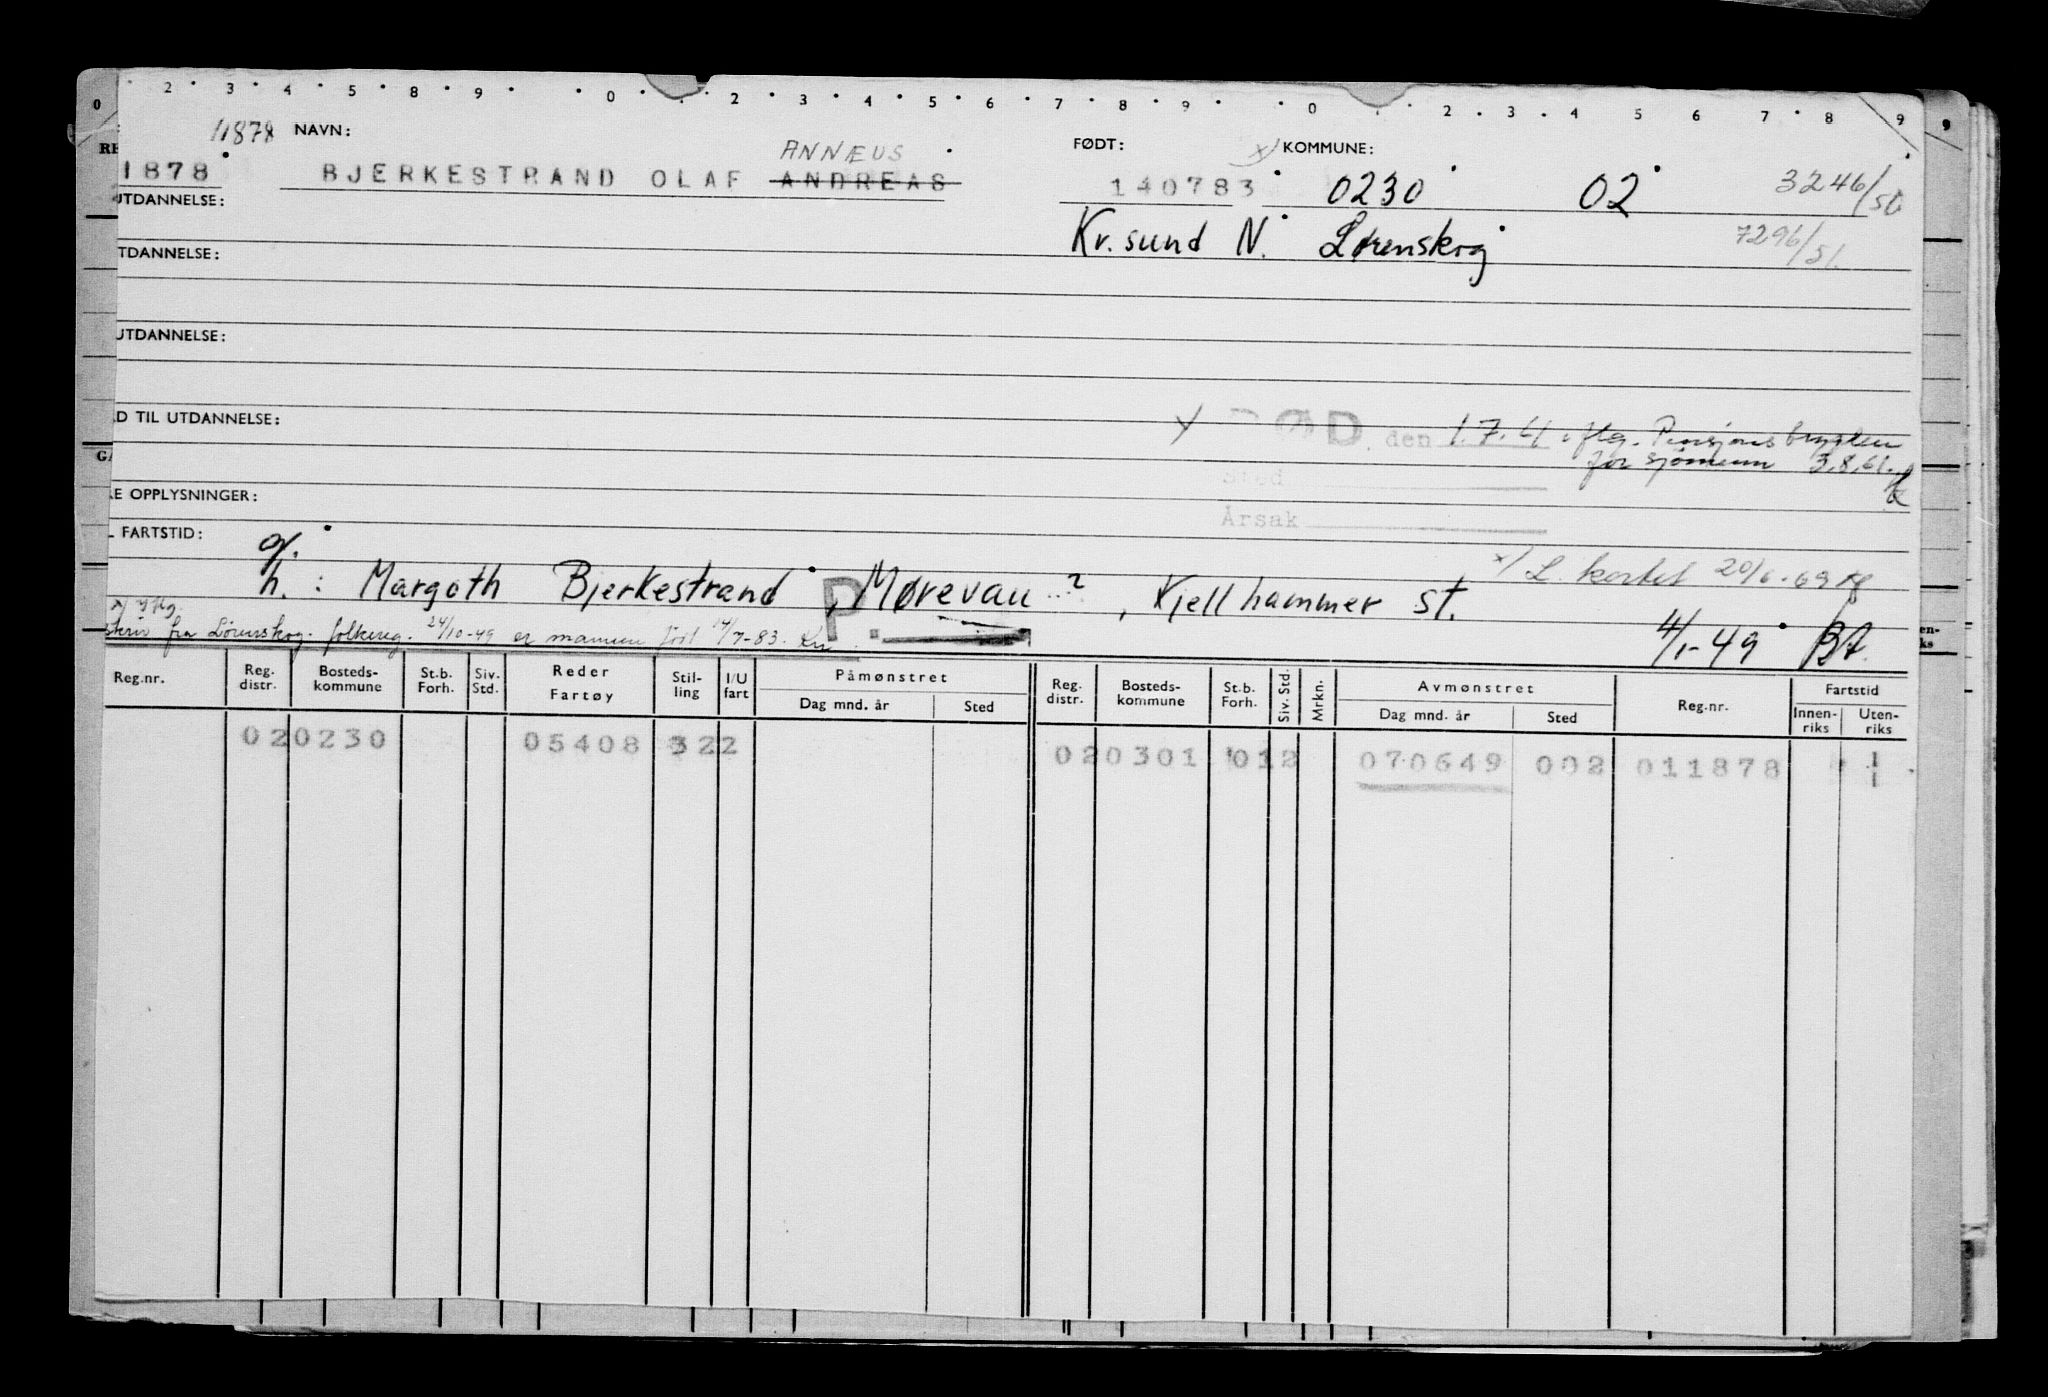 2 3 4 5 8 9 0 2 3 4 5 6 7 8 9 0 2 3 4 5 6 7 8 9
0 9
11878 NAVN: ANNÆUS FØDT: x) KOMMUNE:
1878 BJERKESTRAND OLAF ANDREAS 140783 0230 02 3246/50
UTDANNELSE: Kr.sund N. Lørenskog 7296/51.
TDANNELSE:
UTDANNELSE:
AD TIL UTDANNELSE: DØD. den 1.7.61 iflg. Pensjonstrygden
for sjömenn 3.8.61.
Sted
RE OPPLYSNINGER:
Årsak
L FARTSTID: g.
x) L. kortet 20/6-69
h. : Margoth Bjerkestrand, Mørevau ?, Kjellhammer st.
P.
x) iflg.
skriv fra Lörenskog folkereg. 24/10-49 er mannen föst 14/7-83. Kn
4/1-49 BA.
Reg.nr. Reg. distr. Bosteds-kommune St.b. Forh. Siv. Std. Reder Fartøy Stil-ling I/U fart Påmønstret Dag mnd. år Sted Reg. distr. Bosteds-kommune St.b. Forh. Siv. Std. Mrkn. Avmønstret Dag mnd. år Sted Reg.nr. Fartstid Innen-riks Uten-riks
020230 05408 322 020301 012 070649 002 011878